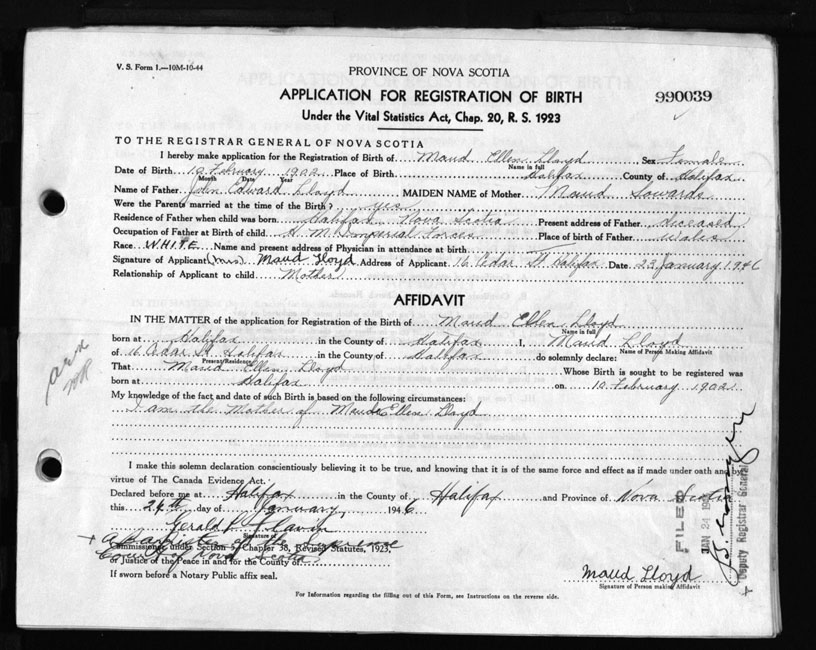 V. S. Form 1.—10M-10-44
PROVINCE OF NOVA SCOTIA
APPLICATION FOR REGISTRATION OF BIRTH
990039
Under the Vital Statistics Act, Chap. 20, R. S. 1923
TO THE REGISTRAR GENERAL OF NOVA SCOTIA
I hereby make application for the Registration of Birth of Maud Ellen Lloyd Sex Female
Name in full
Date of Birth 10 February 1902 Place of Birth Halifax County of Halifax
Month Date Year
Name of Father John Edward Lloyd MAIDEN NAME of Mother Maud Sowards
Were the Parents married at the time of the Birth? yes
Residence of Father when child was born Halifax Nova Scotia Present address of Father deceased
Occupation of Father at Birth of child H. M. Imperial Forces Place of birth of Father Wales
Race WHITE Name and present address of Physician in attendance at birth
Signature of Applicant (Mrs) Maud Lloyd Address of Applicant 16 Cedar St Halifax Date 23 January 1946
Relationship of Applicant to child Mother
AFFIDAVIT
IN THE MATTER of the application for Registration of the Birth of Maud Ellen Lloyd
Name in full
born at Halifax in the County of Halifax I, Maud Lloyd
Name of Person Making Affidavit
of 16 Cedar St. Halifax in the County of Halifax do solemnly declare:
Present Residence
That Maud Ellen Lloyd Whose Birth is sought to be registered was
born at Halifax on 10 February 1902
My knowledge of the fact, and date of such Birth is based on the following circumstances:
I am the Mother of Maude Ellen Lloyd
I make this solemn declaration conscientiously believing it to be true, and knowing that it is of the same force and effect as if made under oath and by
virtue of The Canada Evidence Act.
Declared before me at Halifax in the County of Halifax and Province of Nova Scotia
this 24th day of January 1946
Gerald P. Flavin
Signature of
A Barrister of the Supreme
Commissioner under Section 5, Chapter 38, Revised Statutes, 1923,
Court of Nova Scotia
or Justice of the Peace in and for the County of
If sworn before a Notary Public affix seal.
Maud Lloyd
Signature of Person making Affidavit
For Information regarding the filling out of this Form, see Instructions on the reverse side.
FILED
JAN 24
Deputy Registrar General